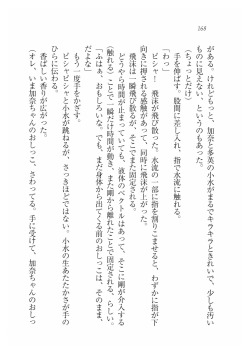 168
がある。けれどもっと、加奈と多英の小水がまるでキラキラときれいで、少しも汚い
ものに見えない、というのもあった。
（ちょっとだけ）
手を伸ばす。股間に差し入れ、指で水流に触れる。
（わっ）
ピシャ！　飛沫が飛び散った。水流の一部に指を割りこませると、わずかに指が下
向きに押される感触があって、同時に飛沫が上がった。
飛沫は一瞬飛び散るが、そこでまた固定される。
どうやら時間が止まっていても、液体のベクトルはあって、そこに剛が介入する
（触れる）ことで一瞬だけ時間が動き、また剛から離れたことで固定される、らしい。
（ふはぁ、おもしろいな。でも、まだ身体から出てくる前のおしっこは、そのまま、
だよな）
もう一度手をかざす。
ピシャピシャと小水が跳ねるが、さっきほどではない。小水の生あたたかさが手の
ひらに伝わる。
香ばしい香りが広がった。
（オレ、いま加奈ちゃんのおしっこ、さわってる、手に受けて、加奈ちゃんのおしっ